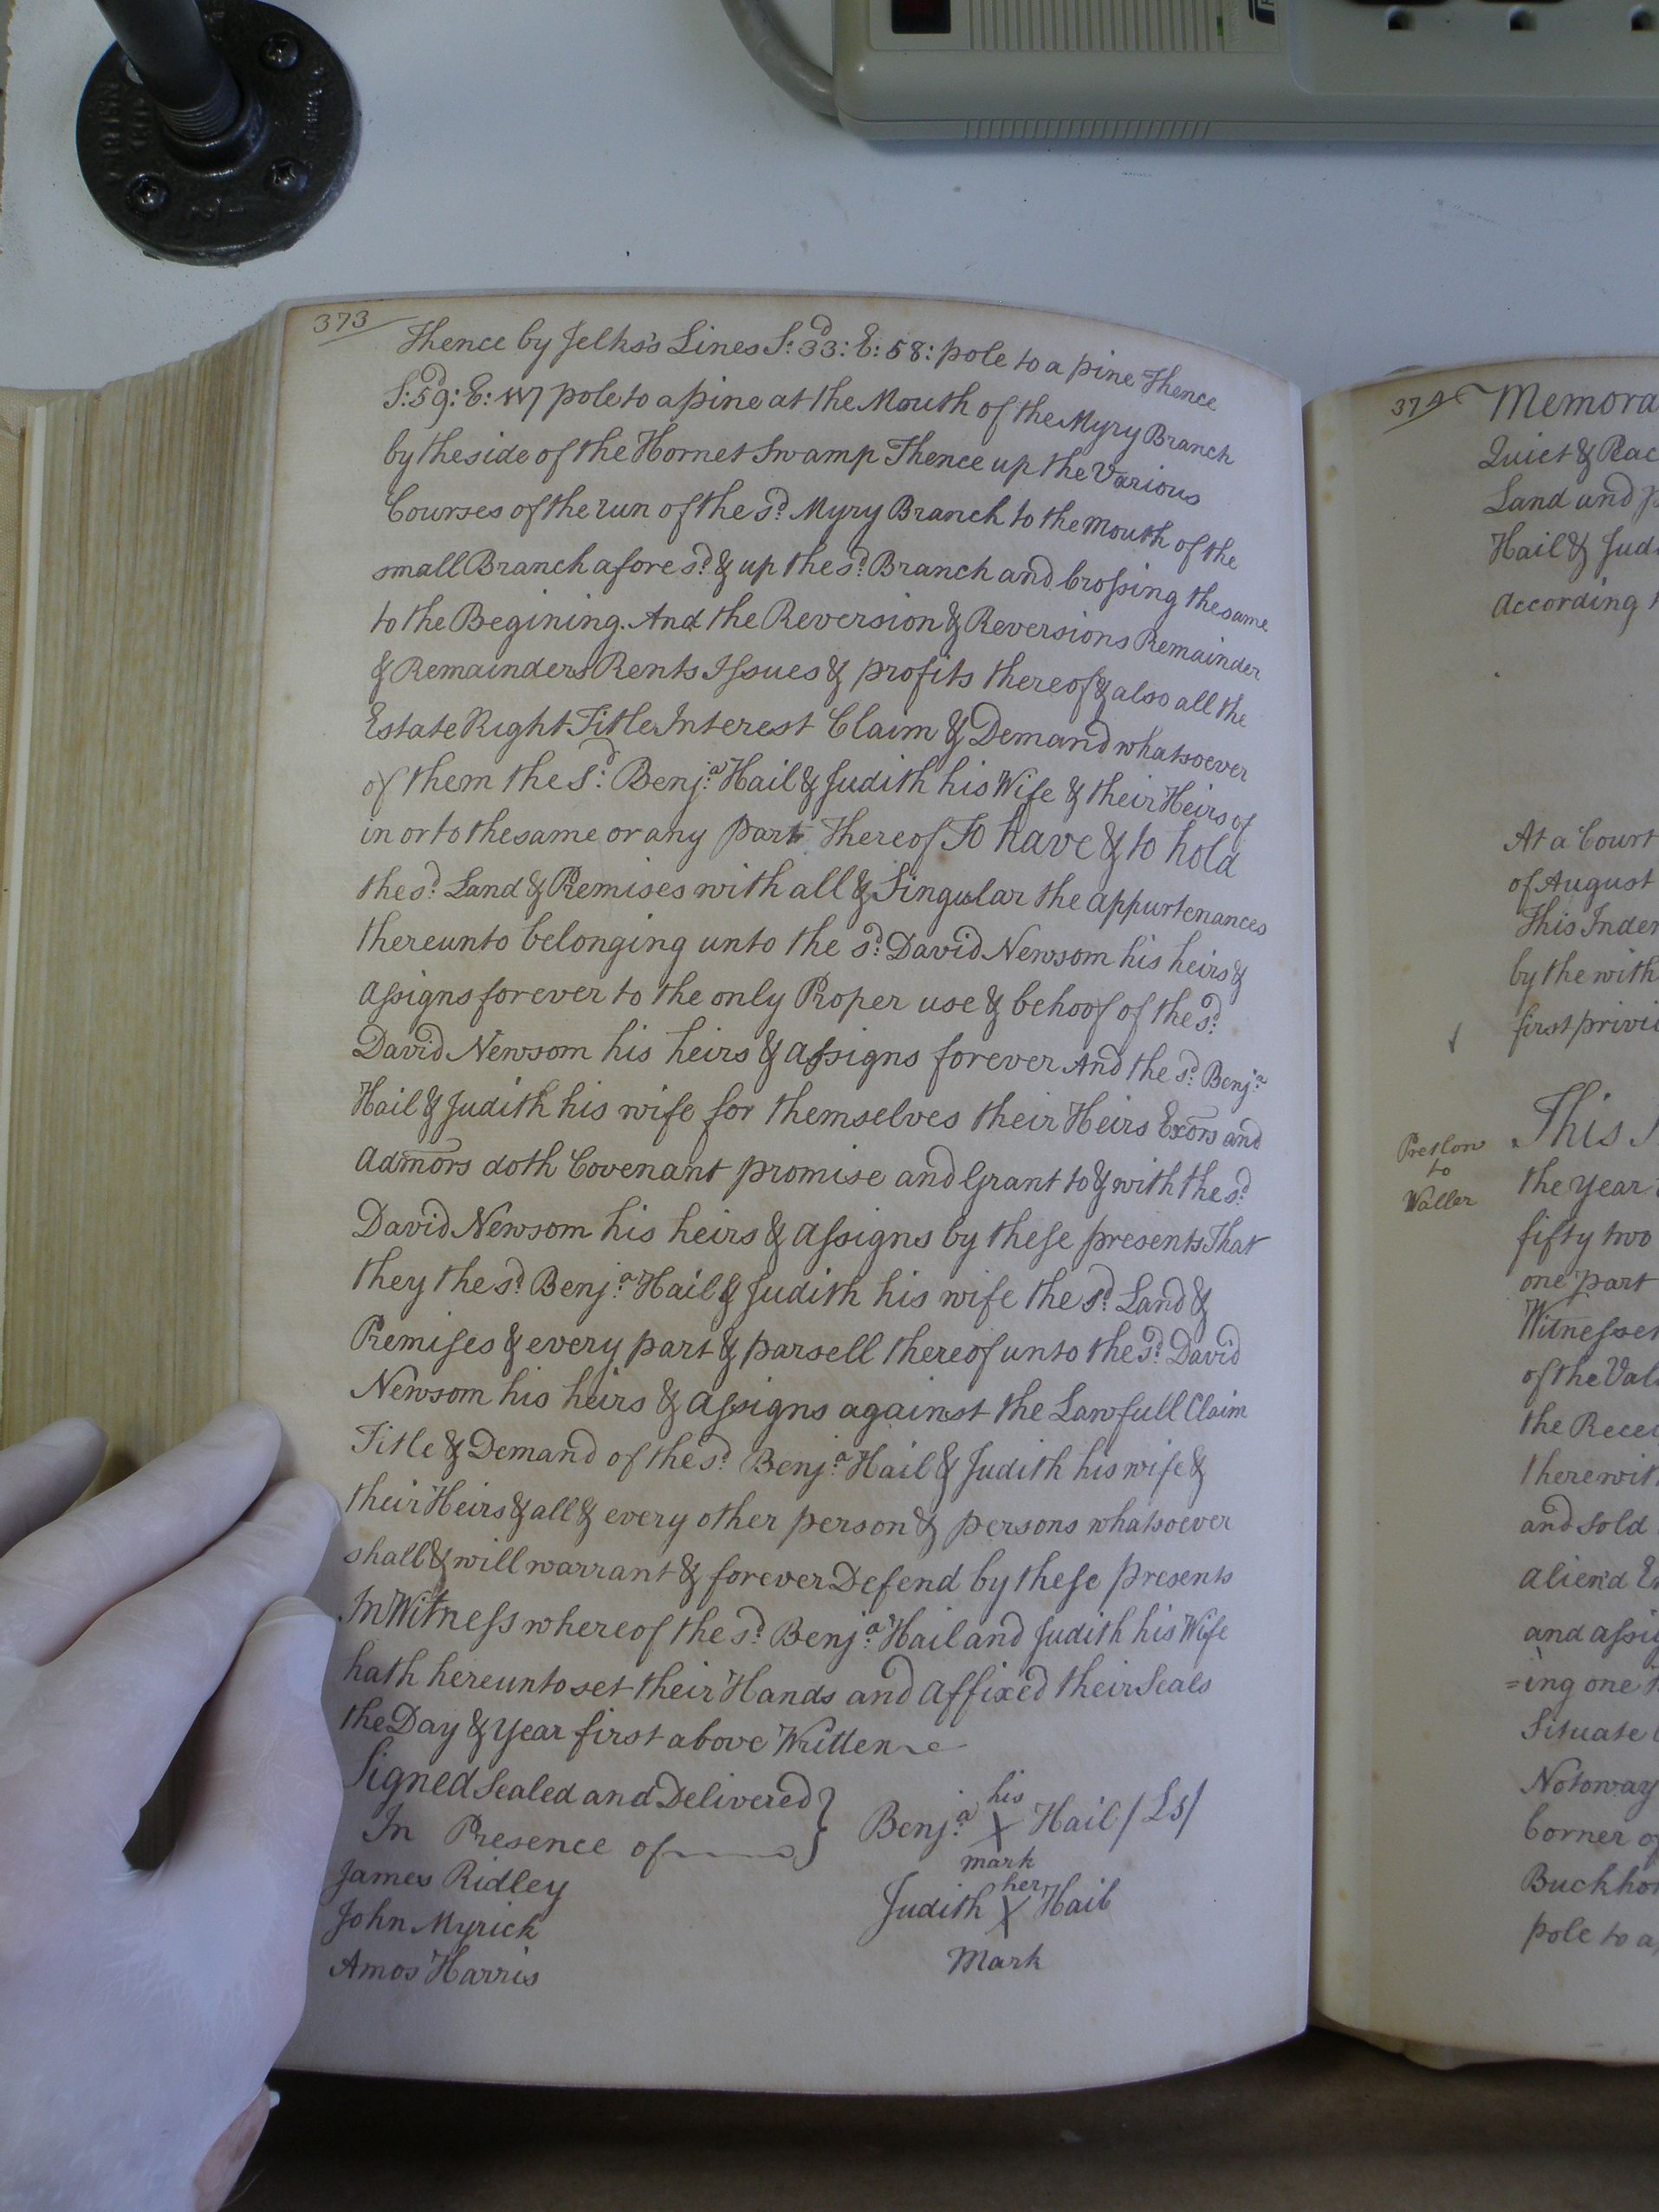 373
Thence by Jelks's Lines S:d 33: E: 58: pole to a pine Thence
S:d 59: E: pole to a pine at the Mouth of the Myry Branch
by the side of the Hornet Swamp Thence up the Various
Courses of the run of the sd. Myry Branch to the mouth of the
small Branch afore sd. & up the sd. Branch and Crossing the same
to the Begining. And the Reversion & Reversions Remainder
& Remainders Rents Issues & profits thereof & also all the
Estate Right Title Interest Claim & Demand whatsoever
of them the Sd. Benja. Hail & Judith his Wife & their Heirs of
in or to the same or any part Thereof To have & to hold
the sd. Land & Premises with all & Singular the appurtenances
thereunto belonging unto the sd. David Newsom his heirs &
assigns forever to the only Proper use & behoof of the sd.
David Newsom his heirs & assigns forever And the sd. Benja.
Hail & Judith his wife for themselves their Heirs Exors and
Admors doth Covenant promise and Grant to & with the sd.
David Newsom his heirs & assigns by these presents That
they the sd. Benja. Hail & Judith his wife the sd. Land &
Premises & every part & parsell thereof unto the sd. David
Newsom his heirs & assigns against the Lawfull Claim
Title & Demand of the sd. Benja. Hail & Judith his wife &
their Heirs & all & every other person & persons whatsoever
shall & will warrant & forever Defend by these presents
In Witness whereof the sd. Benja. Hail and Judith his Wife
hath hereunto set their Hands and affixed their Seals
the Day & year first above Written
Signed Sealed and Delivered }
In Presence of
James Ridley
John Myrick
Amos Harris
his
Benja. X Hail / Ls /
mark
her
Judith X Hail
Mark
374
Memora
Quiet & Peac
Land and p
Hail & Jud
According t
At a Court
of August
This Inden
by the with
first privi
Preston
to
Waller
This I
the year
fifty two
one part
Witnesset
of the Val
the Recei
therewit
and sold
aliend E
and assig
=ing one
Situate
Notoway
Corner of
Buckhor
pole to a